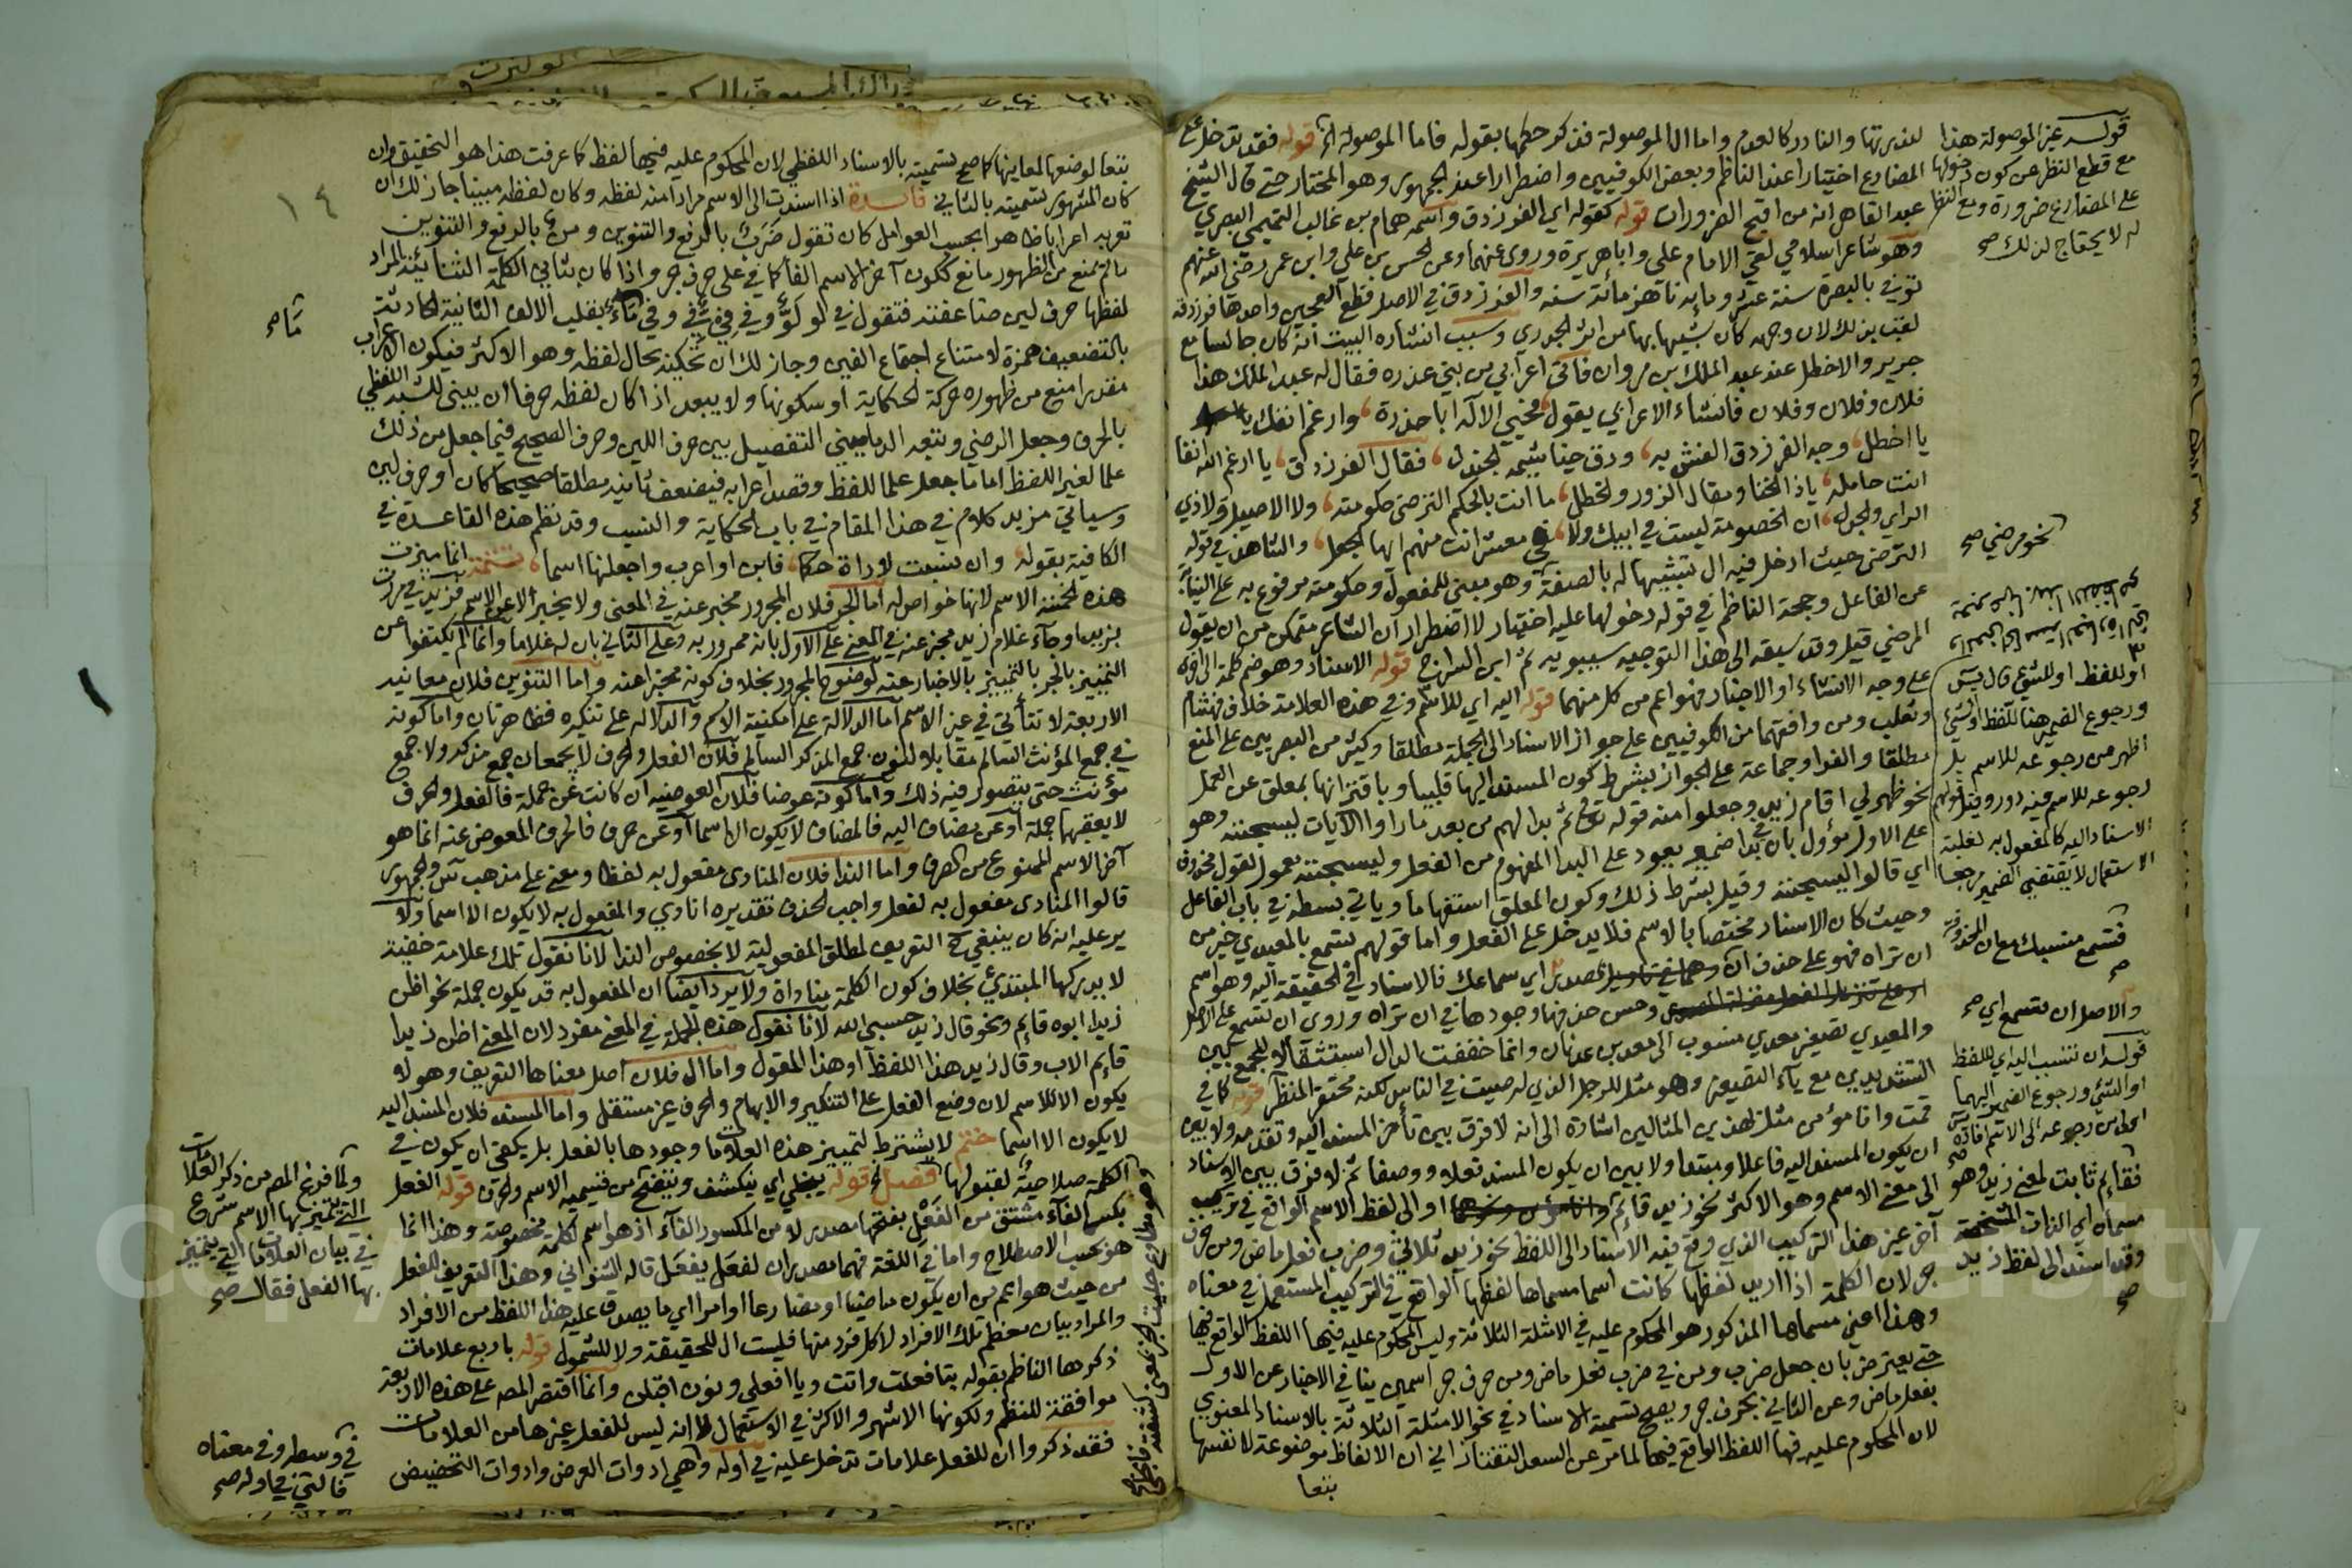 لندرتها والنادر كالعدم واما ال الموصولة فقد ذكر حكمها بقوله فاما الموصولة الخ قوله فقد تدخل على
المضارع اختيارا عند الناظم وبعض الكوفيين واضطرارا عند الجمهور وهو المختار حتى قال الشيخ
عبد القاهر انه من اقبح الضرورات قوله كقوله اي الفرزدق واسمه همام بن غالب التميمي البصري
وهو شاعر اسلامي لقي الامام علي وابا هريرة وروى عنهما وعن الحسن بن علي وابن عمر رضي الله عنهم
توفي بالبصرة سنة عشر وماية ناهز مائة سنة والفرزدق في الاصل قطع العجين واحدها فرزدقة
لقب بذلك لان وجهه كان شبيها بها من اثر الجدري وسبب انشاده البيت انه كان جالسا مع
جرير والاخطل عند عبد الملك بن مروان فاتى اعرابي من بني عذرة فقال له عبد الملك هذا
فلان وفلان وفلان فانشاء الاعرابي يقول فحيي الاله ابا حزرة وارغم انفك يا
يا اخطل وجد الفرزدق اتعس به ودق خياشيمه الجندل فقال الفرزدق يا ارغم الله انفا
انت حامله ياذا الخنا ومقال الزور والخطل ما انت بالحكم الترضى حكومته ولا الاصيل ولا ذي
الراي والجدل ان الخصومة ليست في ابيك ولا في معشر انت منهم ايها الجعل والشاهد في قوله
الترضى حيث ادخل فيه ال تشبيها له بالصفة وهو مبني للمفعول وحكومته مرفوع به على النيابة
عن الفاعل وحجة الناظم في قوله دخولها عليه اختيار لا اضطرار ان الشاعر متمكن من ان يقول
المرضي قيل وقد سبقه الى هذا التوجيه سيبويه ثم ابن السراج قوله الاسناد وهو ضم كلمة الى اخرى
على وجه الانشاء او الاخبار فهو اعم من كل منهما قوله اليه اي للاسم وفي هذه العلامة خلاف فهشام
وثعلب ومن وافقهما من الكوفيين على جواز الاسناد الى الجملة مطلقا وكثير من البصريين على المنع
مطلقا والفرا وجماعة على الجواز بشرط كون المسند اليها قلبيا وباقترانها بمعلق عن العمل
نحو ظهر لي اقام زيد وجعلوا منه قوله تع ثم بدا لهم من بعد ما راوا الايات ليسجننه وهو
على الاول مؤول بان في بدا ضمير يعود على البدا المفهوم من الفعل وليسجننه معمول لقول محذوف
اي قالوا ليسجننه وقيل بشرط ذلك وكون المعلق استفهاما وياتي بسطه في باب الفاعل
وحيث كان الاسناد مختصا بالاسم فلا يدخل على الفعل واما قولهم تسمع بالمعيدي خير من
ان تراه فهو على حذف ان اي سماعك فالاسناد في الحقيقة اليه وهو اسم
وحسن حذفها وجودها في ان تراه وروي ان تسمع على الاصل
والمعيدي تصغير معدي منسوب الى معد بن عدنان وانما خففت الدال استثقالا للجمع بين
التشديدين مع ياء التصغير وهو مثل للرجل الذي له صيت في الناس لكنه محتقر المنظر قوله كما في
قمت وانا مؤمن مثل بهذين المثالين اشارة الى انه لا فرق بين تأخر المسند اليه وتقدمه ولا بين
ان يكون المسند اليه فاعلا ومبتدا ولا بين ان يكون المسند فعلا ووصفا ثم لا فرق بين الاسناد
الى معنى الاسم وهو الاكثر نحو زيد قائم او الى لفظ الاسم الواقع في تركيب
آخر غير هذا التركيب الذي وقع فيه الاسناد الى اللفظ نحو زيد ثلاثي وضرب فعل ماض ومن حرف
جر لان الكلمة اذا اريد لفظها كانت اسما مسماها لفظها الواقع في التركيب المستعمل في معناه
وهذا اعني مسماها المذكور هو المحكوم عليه في الامثلة الثلاثة وليس المحكوم عليه فيها اللفظ الواقع فيها
حتى يعترض بان جعل ضرب ومن في ضرب فعل ماض ومن حرف جر اسمين ينافي الاخبار عن الاول
بفعل ماض وعن الثاني بحرف جر ويصح تسمية الاسناد في نحو الامثلة الثلاثة بالاسناد المعنوي
لان المحكوم عليه فيها اللفظ الواقع فيها لما مر عن السعد التفتازاني ان الالفاظ موضوعة لانفسها
تبعا
قوله غير الموصولة هذا
مع قطع النظر عن كون دخولها
على المضارع ضرورة ومع النظر
له لا يحتاج لذلك صح
نحو مرضي صح
او للفظ او للشئ قال يس
ورجوع الضمير هنا للفظ او لشئ
اظهر من رجوعه للاسم بل
رجوعه للاسم فيه دور وقولهم
الاسناد اليه كالمفعول به لغلبة
الاستعمال لا يقتضي الضمير مرجعا
فتسمع منسبك مع ان المحذوفة
صح
والاصل ان تسمع اي صح
قوله ان تنسب اليه اي للفظ
او الشئ ورجوع الضمير اليهما
اولى من رجوعه الى الاسم افاده يس
صح
فقائم ثابت لمعنى زيد وهو
مسماه اي الذات المشخصة
وقد اسند الى لفظ زيد
صح
١٤
تبعا لوضعها لمعانيها كما صح تسميته بالاسناد اللفظي لان المحكوم عليه فيها لفظ كما عرفت هذا هو التحقيق وان
كان المشهور تسميته بالثاني فائدة اذا اسندت الى الاسم مرادا منه لفظه وكان لفظه مبنيا جاز لك ان
تعربه اعرابا ظاهرا بحسب العوامل كان تقول ضرب بالرفع والتنوين ومن بالرفع والتنوين
ما لم يمنع من الظهور مانع ككون آخر الاسم الفا كما في على حرف جر واذا كان ثاني الكلمة الثنائية المراد
لفظها حرف لين ضاعفته فتقول في لو لوّ وفي في فيّ وفي ما ماء بقلب الالف الثانية الحادثة
بالتضعيف همزة لامتناع اجتماع الفين وجاز لك ان تحكيه بحال لفظه وهو الاكثر فيكون الاعراب
مقدرا منع من ظهوره حركة الحكاية او سكونها ولا يبعد اذا كان لفظه حرفا ان يبنى للشبه اللفظي
بالحرف وجعل الرضي وتبعه الدماميني التفصيل بين حرف اللين وحرف الصحيح فيما جعل من ذلك
علما لغير اللفظ اما ما جعل علما للفظ وقصد اعرابه فيضعف ثانيه مطلقا صحيحا كان او حرف لين
وسياتي مزيد كلام في هذا المقام في باب الحكاية والنسب وقد نظم هذه القاعدة في
الكافية بقوله وان نسبت لاداة حكما فابن او اعرب واجعلنها اسما تتمة انما ميزت
هذه الخمسة الاسم لانها خواص له اما الجر فلان المجرور مخبر عنه في المعنى ولا يخبر الا عن الاسم فزيد في مررت
بزيد او جاء غلام زيد مخبر عنه في المعنى على الاول بانه ممرور به وعلى الثاني بان له غلاما وانما لم يكتفوا عن
التمييز بالجر بالتمييز بالاخبار عنه لوضوح المجرور بخلاف كونه مخبرا عنه واما التنوين فلان معانيه
الاربعة لا تتأتى في غير الاسم اما الدلالة على امكنية الاسم والدلالة على تنكيره فظاهرتان واما كونه
في جمع المؤنث السالم مقابلا لنون جمع المذكر السالم فلان الفعل والحرف لا يجمعان جمع مذكر ولا جمع
مؤنث حتى يتصور فيه ذلك واما كونه عوضا فلان العوضيه ان كانت عن جملة فالفعل والحرف
لا يعقبهما جملة او عن مضاف اليه فالمضاف لا يكون الا اسما او عن حرف فالحرف المعوض عنه انما هو
آخر الاسم الممنوع من الصرف واما الندا فلان المنادى مفعول به لفظا ومعنى على مذهب س والجمهور
قالوا المنادى مفعول به لفعل واجب الحذف تقديره انادي والمفعول به لا يكون الا اسما ولا
ير عليه انه كان ينبغي ح التعريف لمطلق المفعولية لا بخصوص الندا لانا نقول تلك علامة خفية
لا يدركها المبتدئ بخلاف كون الكلمة مناداة ولا يرد ايضا ان المفعول به قد يكون جملة نحو اظن
زيدا ابوه قائم ونحو قال زيد حسبي الله لانا نقول هذه الجملة في المعنى مفرد لان المعنى اظن زيدا
قايم الاب وقال زيد هذا اللفظ او هذا المقول واما ال فلان اصل معناها التعريف وهو لا
يكون الا للاسم لان وضع الفعل على التنكير والابهام والحرف غير مستقل واما المسند فلان المسند اليه
لا يكون الا اسما ختم لا يشترط لتمييز هذه العلامات وجودها بالفعل بل يكفي ان يكون في
الكلمة صلاحية لقبولها فصل قوله ينجلي اي ينكشف ويتضح من قسيميه الاسم والحرف قوله الفعل
بكسر الفاء مشتق من الفعل بفتحها مصدر لا من المكسور الفاء اذ هو اسم لكلمة مخصوصة وهذا انما
هو بحسب الاصطلاح واما في اللغة فهما مصدران لفعل يفعل قاله الشنواني وهذا التعريف للفعل
من حيث هو اعم من ان يكون ماضيا او مضارعا او امرا اي ما يصدق عليه هذا اللفظ من الافراد
والمراد بيان معظم تلك الافراد لا كل فرد منها فليست ال للحقيقة ولا للشمول قوله باربع علامات
ذكرها الناظم بقوله بتا فعلت واتت ويا افعلي ونون اقبلن وانما اقتصر المصه على هذه الاربعة
موافقة للنظم ولكونها الاشهر والاكثر في الاستعمال لا انه ليس للفعل غيرها من العلامات
فقد ذكروا ان للفعل علامات تدخل عليه في اوله وهي ادوات العرض وادوات التحضيض
ولما فرغ المص من ذكر العلامات
التي يتميز بها الاسم شرع
في بيان العلامات التي يتميز
بها الفعل فقال صح
في وسطه وفي معناه
فالتي في اوله صح